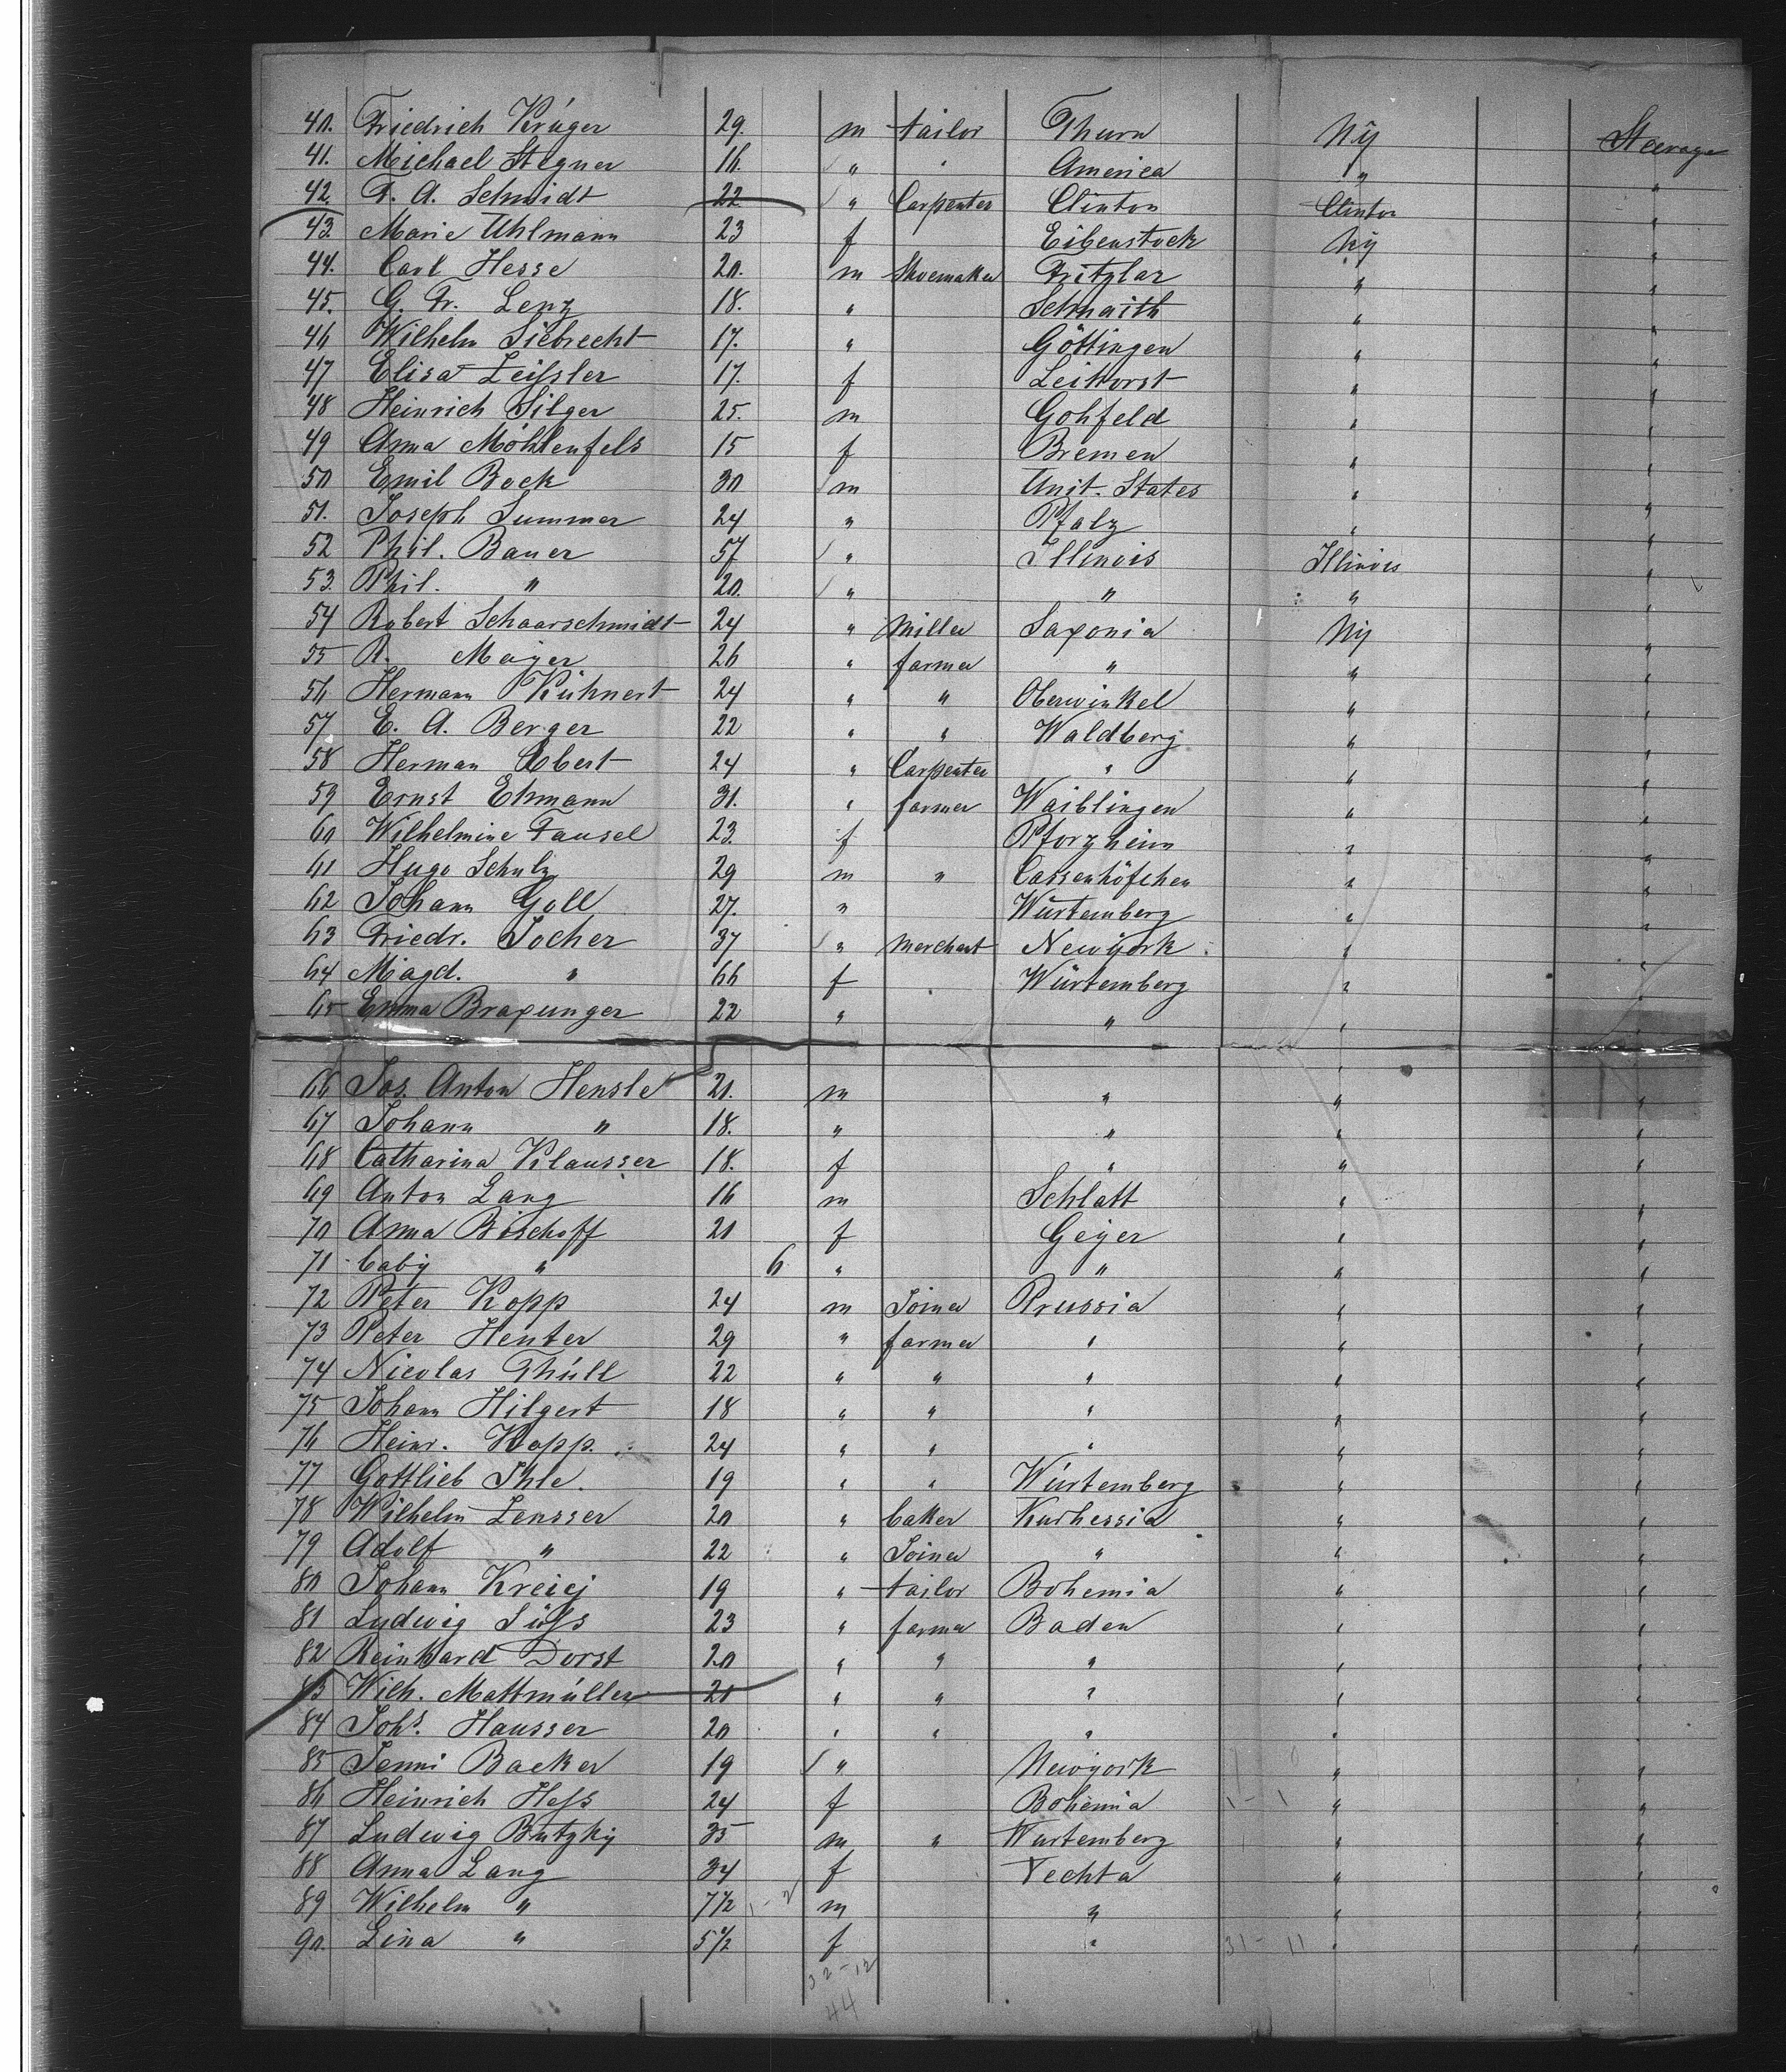 40. Friedrich Krüger 29. m tailor Thurn Ny Steerage
41. Michael Stegner 16. " " America " "
42. F. A. Schmidt 22 " Carpenter Clinton Clinton "
43. Marie Uhlmann 23 f Eibenstock Ny "
44. Carl Hesse 20. m Shoemaker Fritzlar " "
45. G. Fr. Lenz 18. " Schnaith " "
46 Wilhelm Siebrecht 17. " Göttingen " "
47 Elisa Zeissler 17. f Leihorst " "
48 Heinrich Silger 25. m Gohfeld " "
49 Anna Möhlenfels 15 f Bremen " "
50 Emil Bock 30 m Unit. States " "
51. Joseph Summer 24 " Pfalz " "
52 Phil. Bauer 57 " Illinois Illinois "
53. Phil. " 20. " " " "
54 Robert Schaarschmidt 24 " Miller Saxonia Ny "
55 R. Meyer 26 " farmer " " "
56 Hermann Kühnert 24 " " Oberwinkel " "
57 E. A. Berger 22 " " Waldberg " "
58 Herman Ebert 24 " Carpenter " " "
59 Ernst Ehmann 31. " farmer Waiblingen " "
60 Wilhelmine Fausel 23. f Pforzheim " "
61 Hugo Schulz 29 m " Cassenhöfchen " "
62 Johann Goll 27. " Würtemberg " "
63 Friedr. Jocher 37 " Merchant Newyork " "
64 Magd. " 66 f Würtemberg " "
65 Emma Braxunger 22 " " " "
66 Jos. Anton Hensle 21. m " " "
67 Johann " 18. " " " "
68 Catharina Klausser 18. f " " "
69 Anton Lang 16 m Schlatt " "
70 Anna Bischoff 21 f Geyer " "
71 baby " 6 " " " "
72 Peter Kopp 24 m Joiner Prussia " "
73 Peter Henter 29 " farmer " " "
74 Nicolas Thüll 22 " " " " "
75 Johann Hilgert 18 " " " " "
76 Heinr. Kopp. 24 " " " " "
77 Gottlieb Ihle. 19 " " Würtemberg " "
78 Wilhelm Zensser 20 " baker Kurhessia " "
79 Adolf " 22 " Joiner " " "
80 Johann Kreicj 19 " tailor Bohemia " "
81 Ludwig Süss 23 " farmer Baden " "
82 Reinhard Dorst 20 " " " " "
83 Wilh. Mattmüller 21 " " " " "
84 Johs. Hausser 20 " " " " "
85 Jenni Backer 19 " Newyork " "
86 Heinrich Hess 24 f Bohemia " "
87 Ludwig Butzky 35 m " Wurtemberg " "
88 Anna Lang 34 f Vechta " "
89 Wilhelm " 7 1/2 m " " "
90. Lina " 5 1/2 f " 31 - 11 " "
32 - 12
44